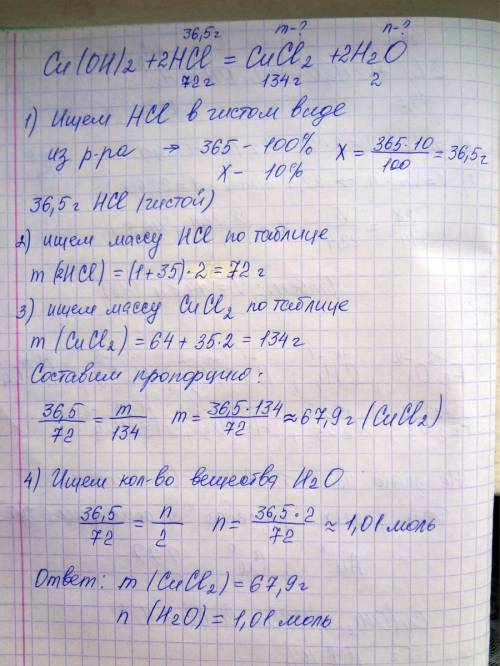 36,5г m-? n-?
Cu(OH)2 + 2HCl = CuCl2 + 2H2O
72г 134г 2
1) Ищем HCl в чистом виде
из р-ра → 365 - 100% X = 365·10/100 = 36,5г
X - 10%
36,5г HCl (чистой)
2) ищем массу HCl по таблице
m(2HCl) = (1+35)·2 = 72 г
3) ищем массу CuCl2 по таблице
m(CuCl2) = 64 + 35·2 = 134г
Составим пропорцию:
36,5/72 = m/134 m = 36,5·134/72 ≈ 67,9г (CuCl2)
4) Ищем кол-во вещества H2O
36,5/72 = n/2 n = 36,5·2/72 ≈ 1,01 моль
Ответ: m(CuCl2) = 67,9г
n (H2O) = 1,01 моль